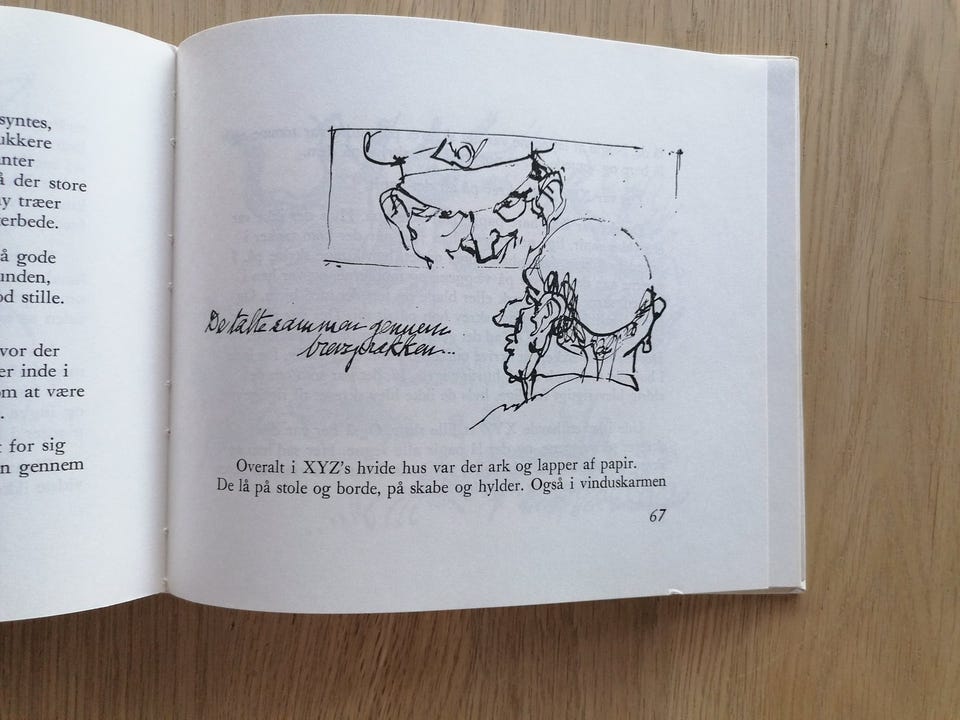 syntes,
ukkere
anter
å der store
y træer
erbede.
å gode
unden,
od stille.
vor der
er inde i
om at være
.
t for sig
n gennem
De talte sammen gennem
brevsprækken...
Overalt i XYZ's hvide hus var der ark og lapper af papir.
De lå på stole og borde, på skabe og hylder. Også i vinduskarmen
67